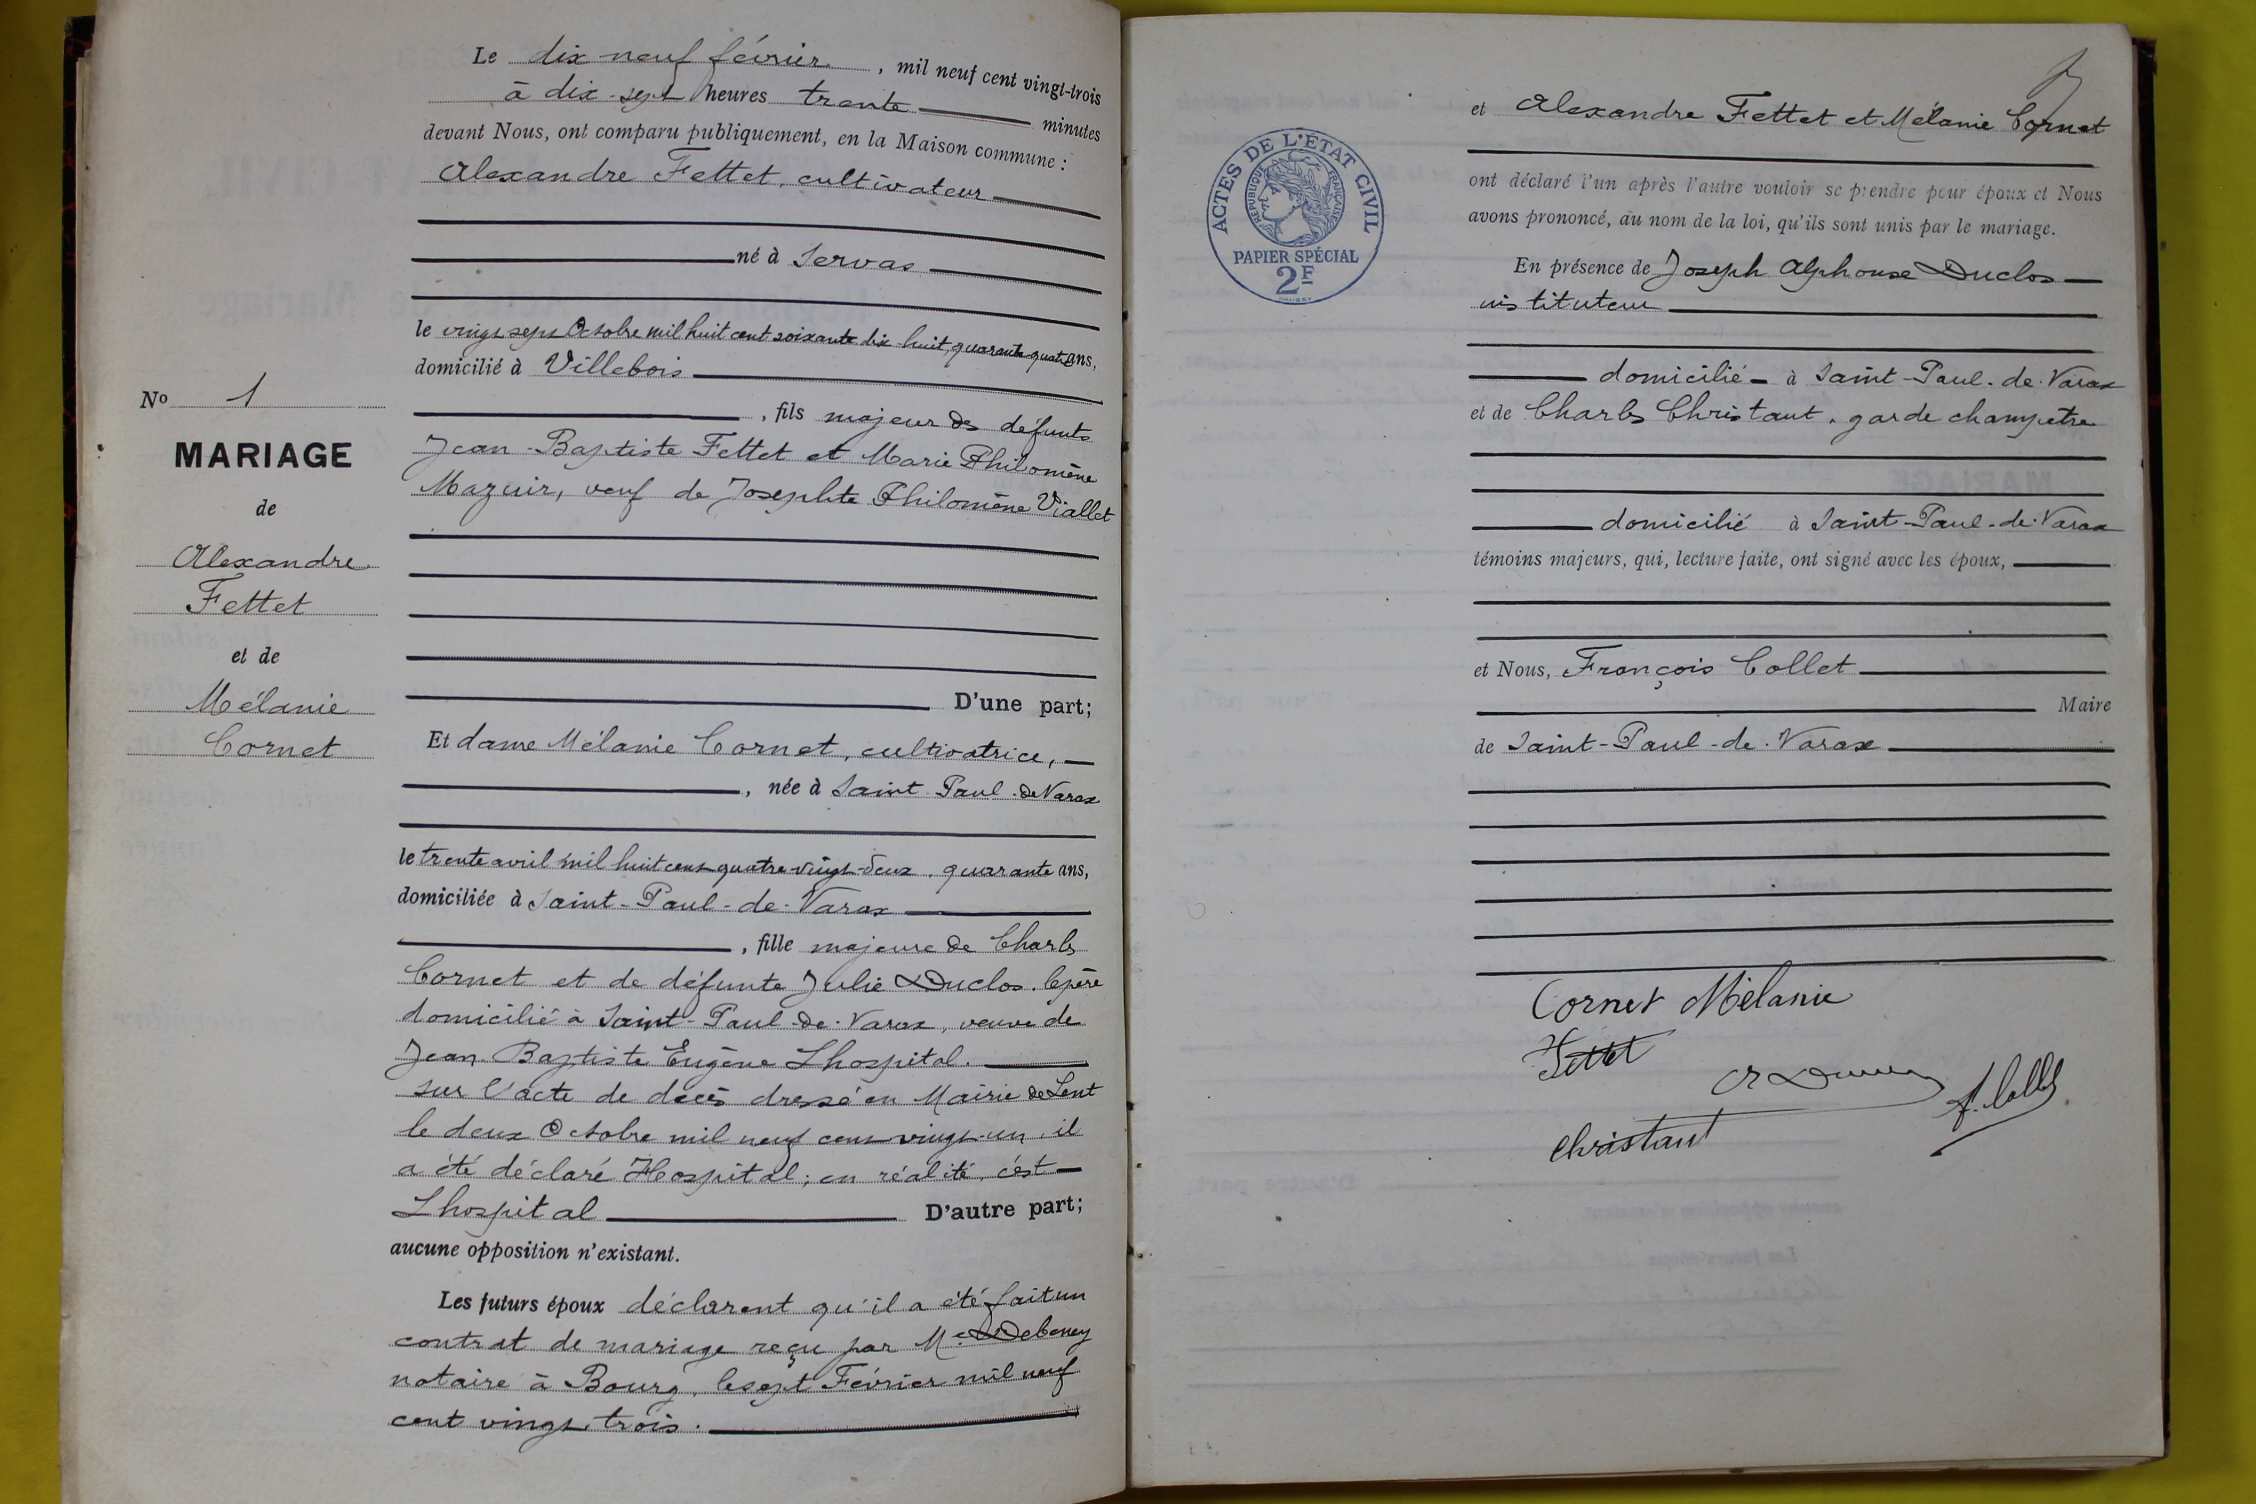 Le dix neuf février, mil neuf cent vingt-trois
à dix-sept heures trente minutes
devant Nous, ont comparu publiquement, en la Maison commune :
Alexandre Fettet, cultivateur
né à Servas
le vingt sept Octobre mil huit cent soixante dix-huit, quarante quatre ans,
domicilié à Villebois
, fils majeur des défunts
Jean-Baptiste Fettet et Marie Philomène
Mazuir, veuf de Josephte Philomène Viallet
D'une part;
No 1
MARIAGE
de
Alexandre
Fettet
et de
Mélanie
Cornet
Et dame Mélanie Cornet, cultivatrice,
, née à Saint-Paul-de-Varax
le trente avril mil huit cent quatre-vingt-deux, quarante ans,
domiciliée à Saint-Paul-de-Varax
, fille majeure de Charles
Cornet et de défunte Julie Duclos. Le père
domicilié à Saint-Paul-de-Varax, veuve de
Jean-Baptiste Eugène Lhospital.
Sur l'acte de décès dressé en Mairie de Lent
le deux Octobre mil neuf cent vingt-un, il
a été déclaré Hospital ; en réalité, c'est
Lhospital D'autre part;
aucune opposition n'existant.
Les futurs époux déclarent qu'il a été fait un
contrat de mariage reçu par Me Debeney
notaire à Bourg, le sept Février mil neuf
cent vingt-trois.
ACTES DE L'ÉTAT CIVIL
RÉPUBLIQUE FRANÇAISE
PAPIER SPÉCIAL
2F
et Alexandre Fettet et Mélanie Cornet
ont déclaré l'un après l'autre vouloir se prendre pour époux et Nous
avons prononcé, au nom de la loi, qu'ils sont unis par le mariage.
En présence de Joseph Alphonse Duclos
instituteur
domicilié à Saint-Paul-de-Varax
et de Charles Christaut, garde champetre
domicilié à Saint-Paul-de-Varax
témoins majeurs, qui, lecture faite, ont signé avec les époux,
et Nous, François Collet
Maire
de Saint-Paul-de-Varax
Cornet Mélanie
Fettet
F. Collet
Christaut